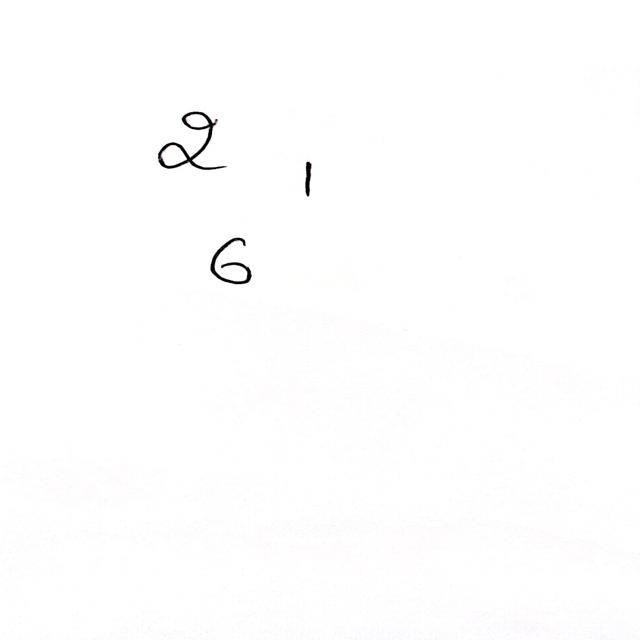 2
1
6